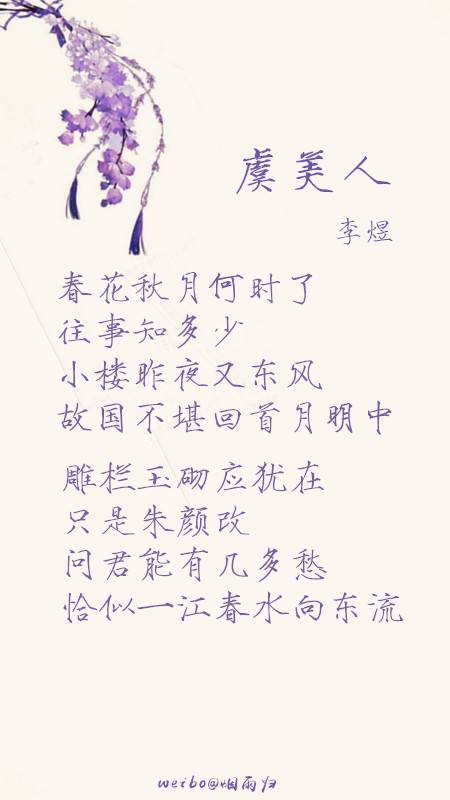 虞美人
李煜
春花秋月何时了
往事知多少
小楼昨夜又东风
故国不堪回首月明中
雕栏玉砌应犹在
只是朱颜改
问君能有几多愁
恰似一江春水向东流
weibo@烟雨归